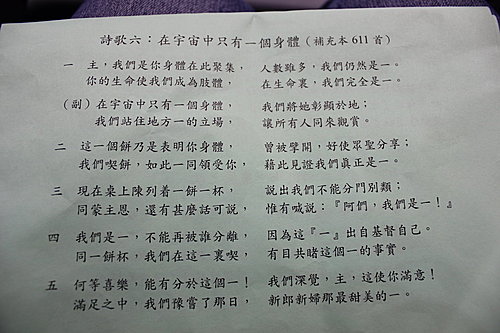 詩歌六：在宇宙中只有一個身體（補充本 611 首）
一 主，我們是你身體在此聚集， 人數雖多，我們仍然是一。
你的生命使我們成為肢體， 在生命裏，我們完全是一。
（副）在宇宙中只有一個身體， 我們將她彰顯於地；
我們站住地方一的立場， 讓所有人同來觀賞。
二 這一個餅乃是表明你身體， 曾被擘開，好使眾聖分享；
我們喫餅，如此一同領受你， 藉此見證我們真正是一。
三 現在桌上陳列着一餅一杯， 說出我們不能分門別類；
同蒙主恩，還有甚麼話可說， 惟有喊說：『阿們，我們是一！』
四 我們是一，不能再被誰分離， 因為這『一』出自基督自己。
同一餅杯，我們在這一裏喫， 有目共睹這個一的事實。
五 何等喜樂，能有分於這個一！ 我們深覺，主，這使你滿意！
滿足之中，我們豫嘗了那日， 新郎新婦那最甜美的一。